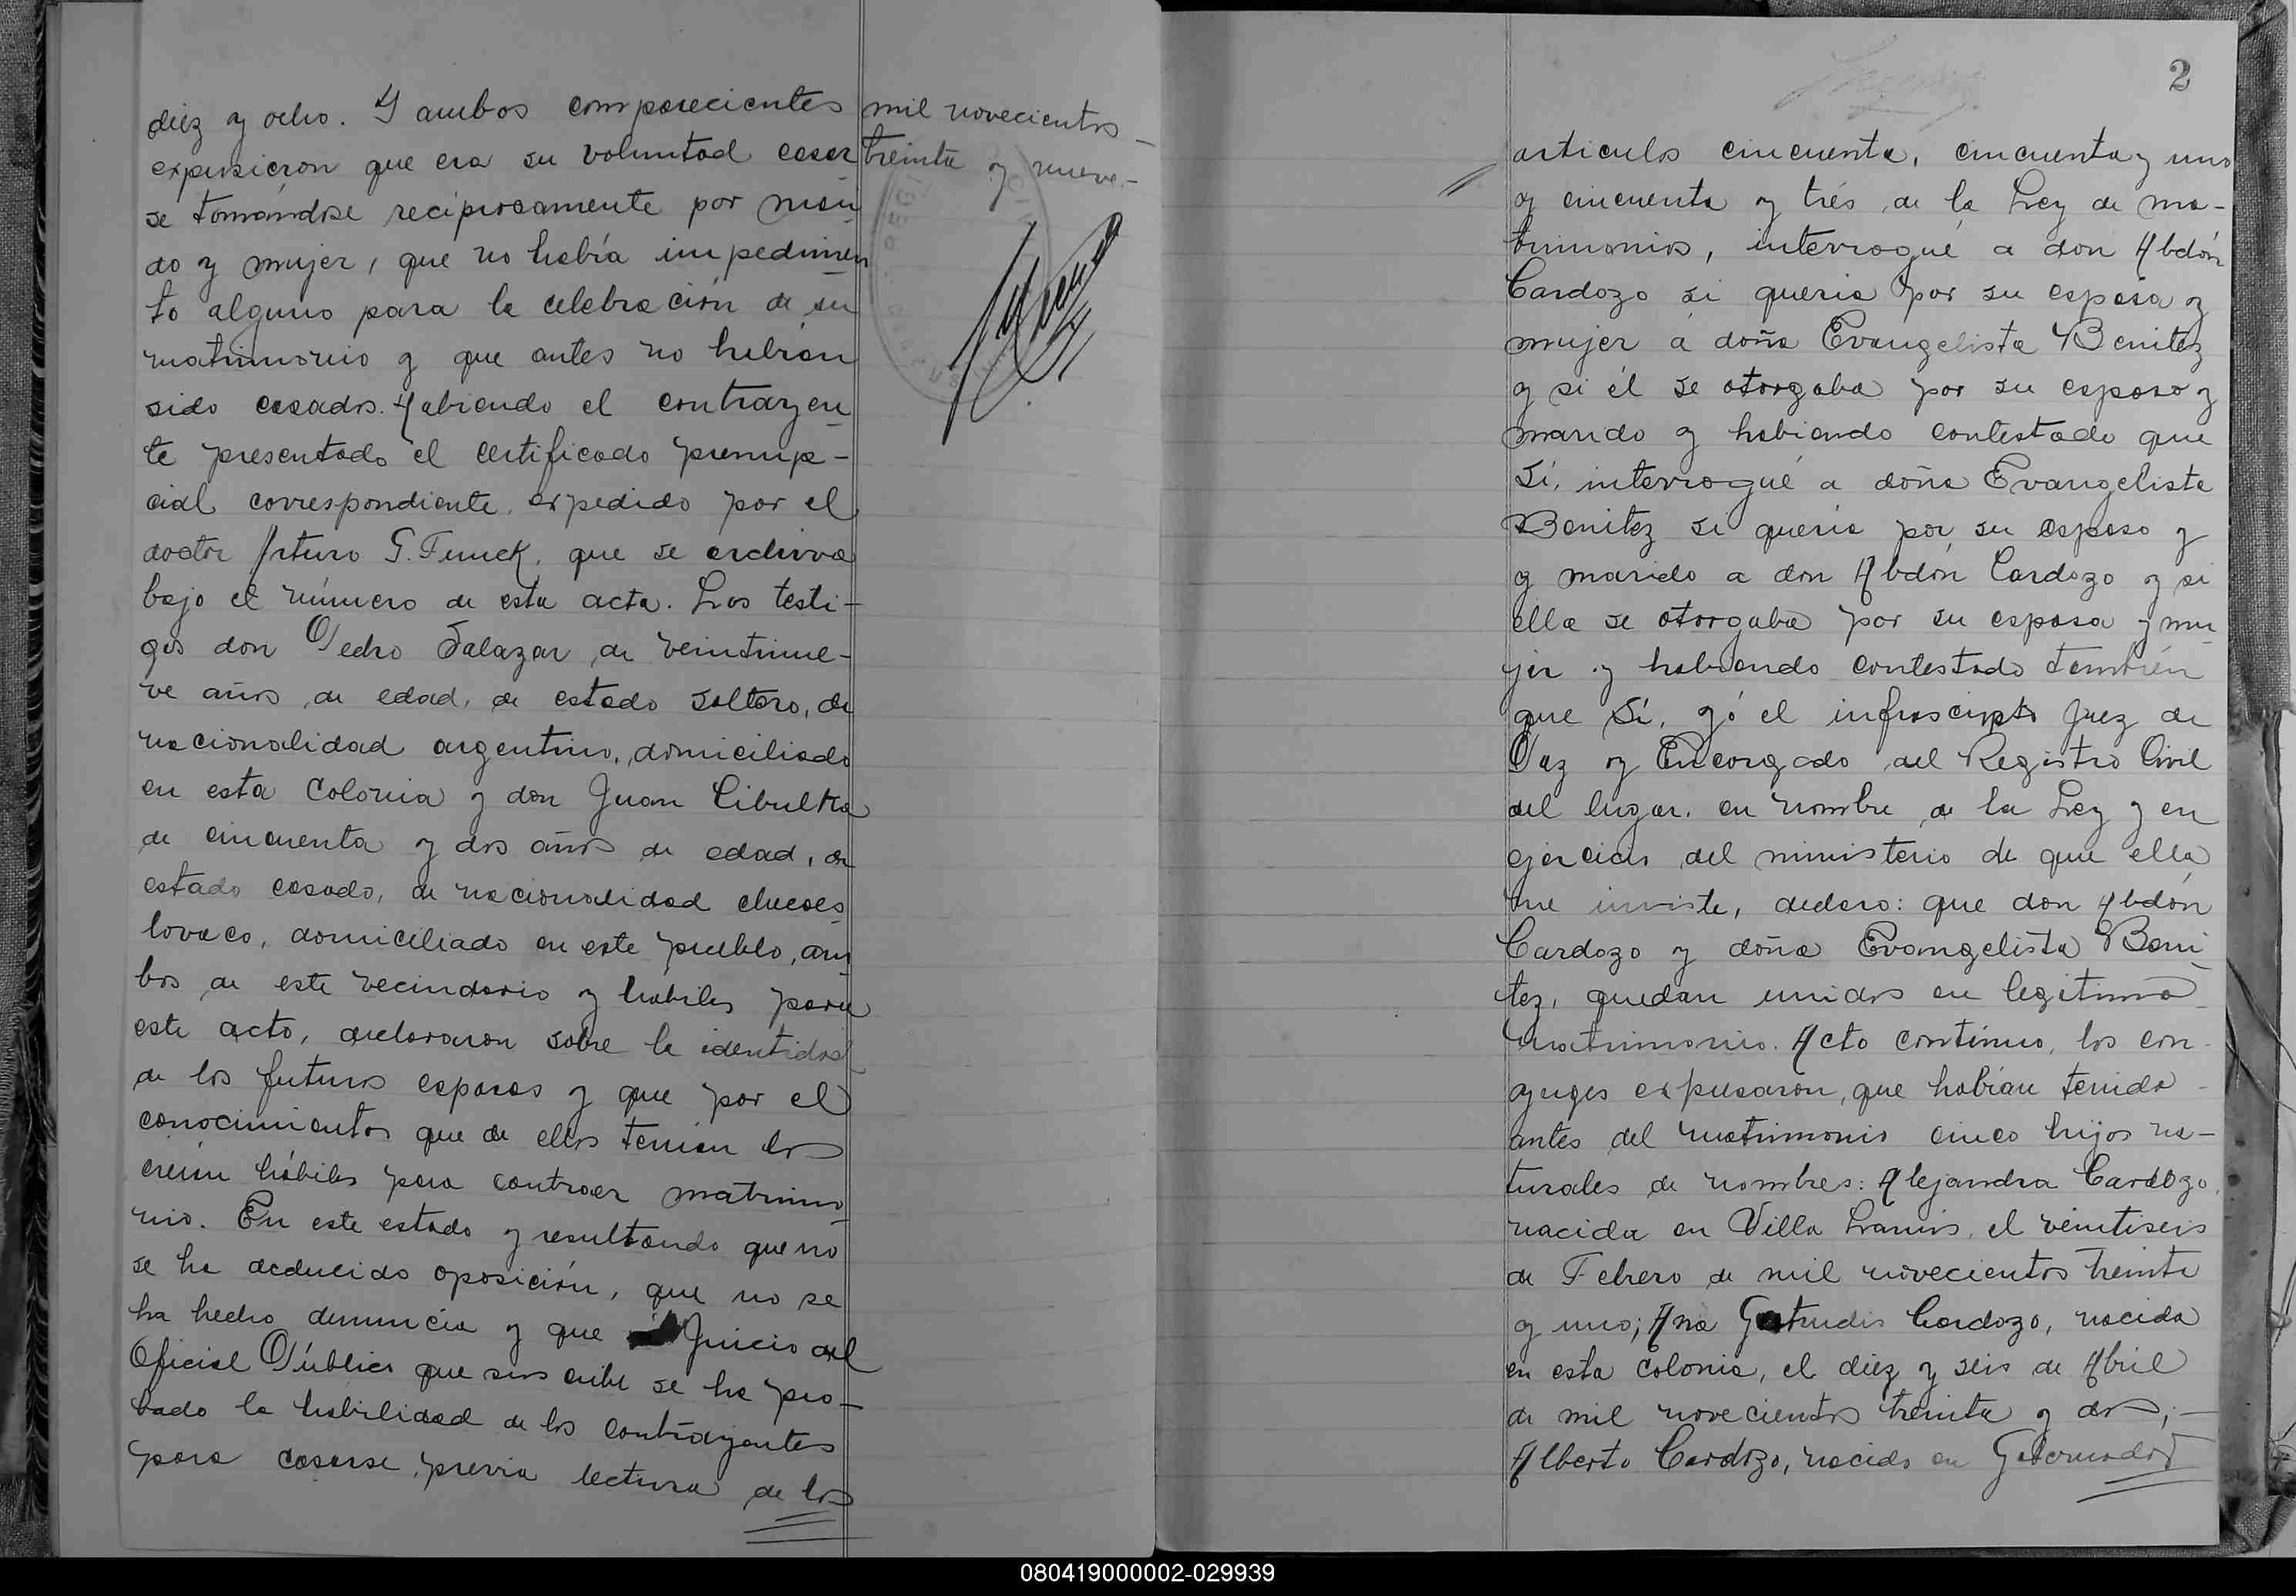 diéz y ocho. Y ambos comparecientes
expusieron que era su voluntad casar
se tomándose recíprocamente por mari
do y mujer, que no había impedimen
to alguno para la celebración de su
matrimonio y que antes no habian
sido casados. Habiendo el contrayen
te presentado el certificado prenup-
cial correspondiente, expedido por el
doctor Arturo G. Funck, que se archiva
bajo el número de esta acta. Los testi-
gos don Pedro Salazar, de veintinue-
ve años de edad, de estado soltero, de
nacionalidad argentino, domiciliado
en esta Colonia y don Juan Cibulka
de cincuenta y dos años de edad, de
estado casado, de nacionalidad checoes
lovaco, domiciliado en este pueblo, am
bos de este vecindario y hábiles para
este acto, declararon sobre la identidad
de los futuros esposos y que por el
conocimientos que de ellos tenían los
creían hábiles para contraer matrimo
nio. En este estado y resultando que no
se ha deducido oposición, que no se
ha hecho denuncia y que Juicio del
Oficial Público que suscribe se ha pro-
bado la habilidad de los contrayentes
para casarse, previa lectura de los
mil novecientos
treinta y nueve.-
2
articulos cincuenta, cincuenta y uno
y cincuenta y trés de la Ley de ma-
trimonios, interrogué a don Abdón
Cardozo si queria por su esposa y
mujer á doña Evangelista Benitez
y si él se otorgaba por su esposo y
marido y habiendo contestado que
Sí, interrogué a doña Evangelista
Benitez si queria por su esposo y
y marido a don Abdón Cardozo y si
ella se otorgaba por su esposa y mu
jer y habiendo contestado también
que Sí, yó el infrascripto Juez de
Paz y Encargado del Registro Civil
del lugar, en nombre de la Ley y en
ejercicio del ministerio de que ella
me inviste, declaro: que don Abdón
Cardozo y doña Evangelista Beni
tez, quedan unidos en legítimo
matrimonio. Acto contínuo, los con-
yuges expusaron, que habían tenido
antes del matrimonio cinco hijos na-
turales de nombres: Alejandra Cardozo,
nacida en Villa Lanús, el veintiseis
de Febrero de mil novecientos treinta
y uno; Ana Gertrudis Cardozo, nacida
en esta colonia, el diéz y seis de Abril
de mil novecientos treinta y dos;-
Alberto Cardozo, nacido en Gobernador
080419000002-029939